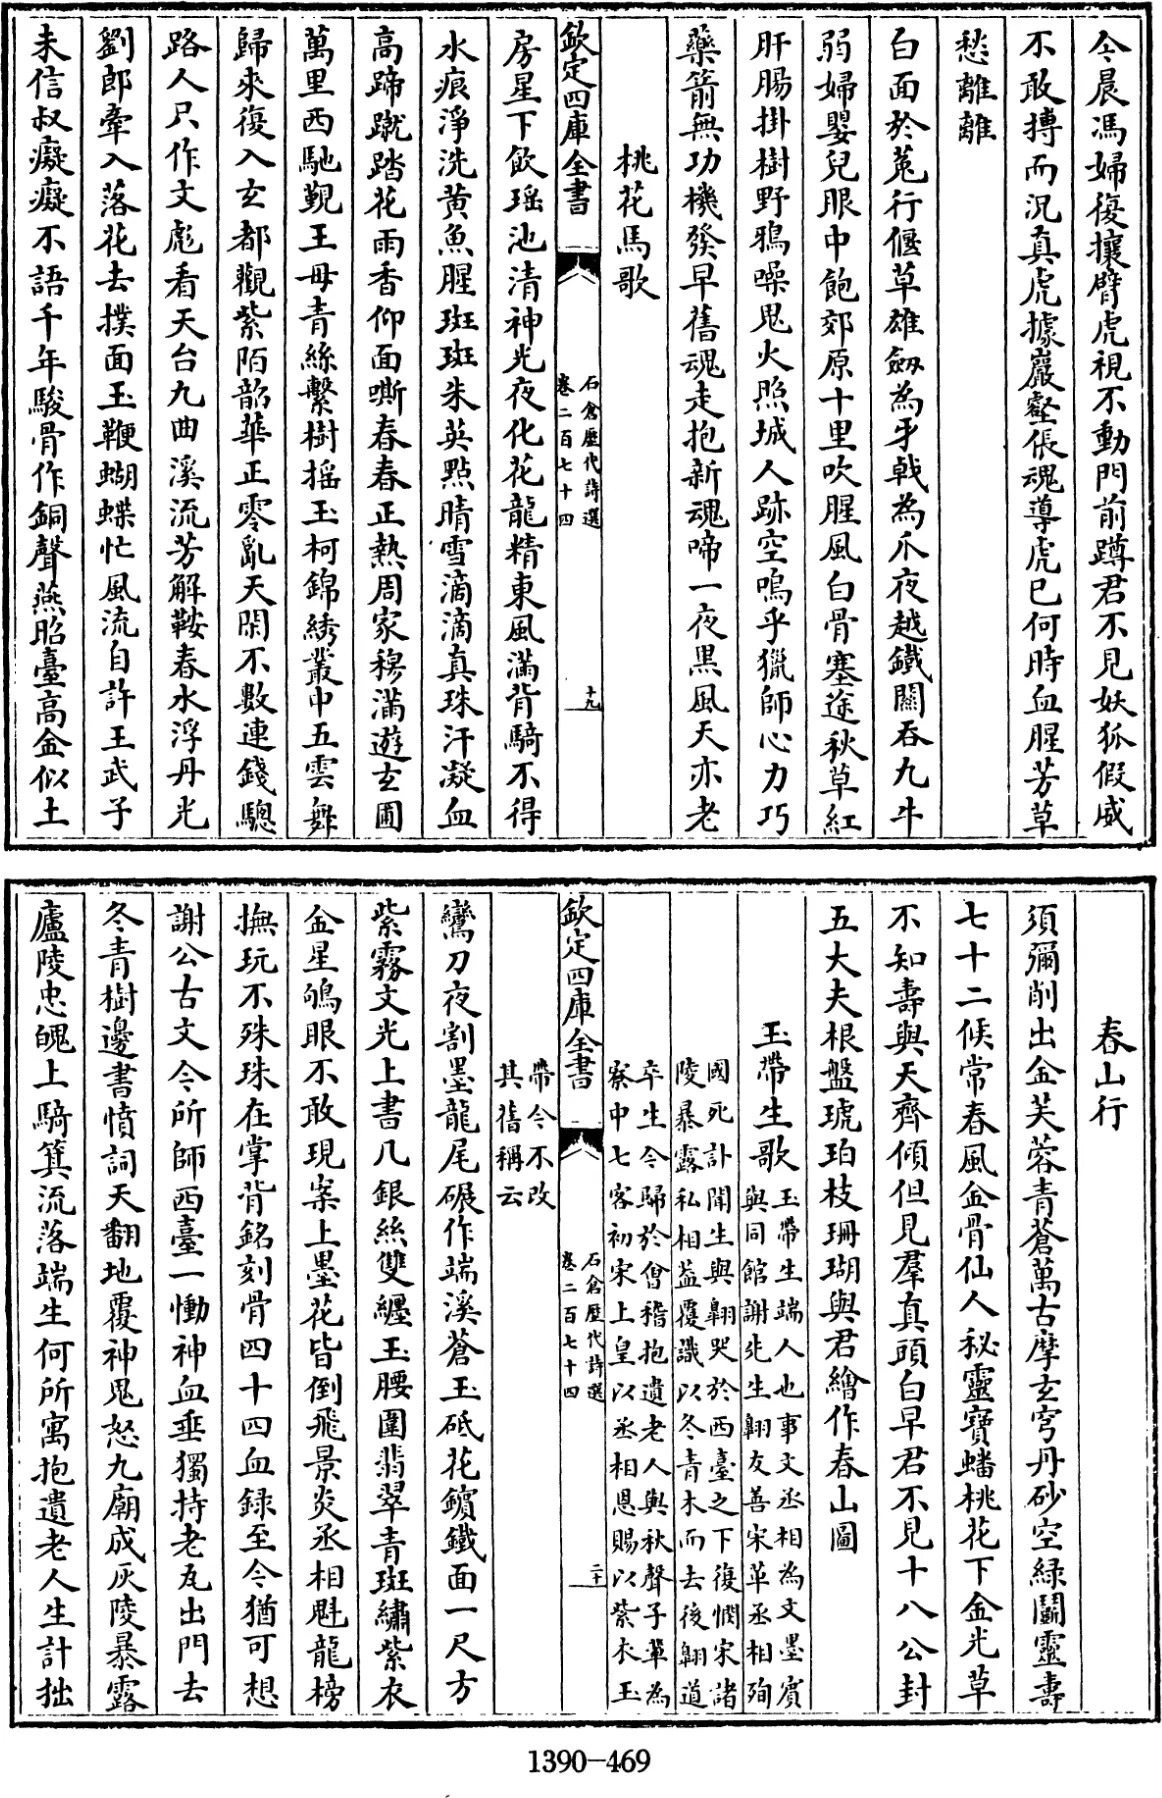 今晨馮婦復攘臂虎視不動門前蹲君不見妖狐假威
不敢搏而況真虎據巖壑倀魂導虎巳何時血腥芳草
愁離離
白面於菟行偃草雄劔為牙戟為爪夜越鐵關吞九牛
弱婦嬰兒眼中飽郊原十里吹腥風白骨塞途秋草紅
肝腸掛樹野鴉噪鬼火照城人跡空嗚乎獵師心力巧
藥箭無功機發早舊魂走抱新魂啼一夜黒風天亦老
桃花馬歌
欽定四庫全書
石倉歷代詩選
卷二百七十四
十九
房星下飲瑶池清神光夜化花龍精東風滿背騎不得
水痕淨洗黄魚腥斑斑朱英點晴雪滴滴真珠汗凝血
高蹄蹴踏花雨香仰面嘶春春正熱周家穆滿遊玄圃
萬里西馳覲王母青絲繫樹摇玉柯錦綉叢中五雲舞
歸來復入玄都觀紫陌韶華正零亂天閑不數連錢驄
路人只作文彪看天台九曲溪流芳解鞍春水浮丹光
劉郎牽入落花去撲面玉鞭蝴蝶忙風流自許王武子
未信叔癡癡不語千年駿骨作銅聲燕昭臺高金似土
春山行
須彌削出金芙蓉青蒼萬古摩玄穹丹砂空緑鬭靈壽
七十二候常春風金骨仙人秘靈寶蟠桃花下金光草
不知壽與天齊傾但見羣真頭白早君不見十八公封
五大夫根盤琥珀枝珊瑚與君繪作春山圖
玉帶生歌
玉帶生端人也事文丞相為文墨賓
與同館謝先生翺友善宋革丞相殉
國死訃聞生與翺哭於西臺之下復憫宋諸
陵暴露私相葢覆識以冬青木而去後翺道
卒生今歸於㑹稽抱遺老人與秋聲子輩為
寮中七客初宋上皇以丞相恩賜以紫衣玉
帶今不改
其舊稱云
欽定四庫全書
石倉歷代詩選
卷二百七十四
二十
鸞刀夜割墨龍尾碾作端溪蒼玉砥花鑌鐵面一尺方
紫霧文光上書几銀絲雙纏玉腰圍翡翠青斑繡紫衣
金星鴝眼不敢現案上墨花皆倒飛景炎丞相魁龍榜
撫玩不殊珠在掌背銘刻骨四十四血録至今猶可想
謝公古文今所師西臺一慟神血垂獨持老瓦出門去
冬青樹邊書憤詞天翻地覆神鬼怒九廟成灰陵暴露
廬陵忠魄上騎箕流落端生何所寓抱遺老人生計拙
1390-469